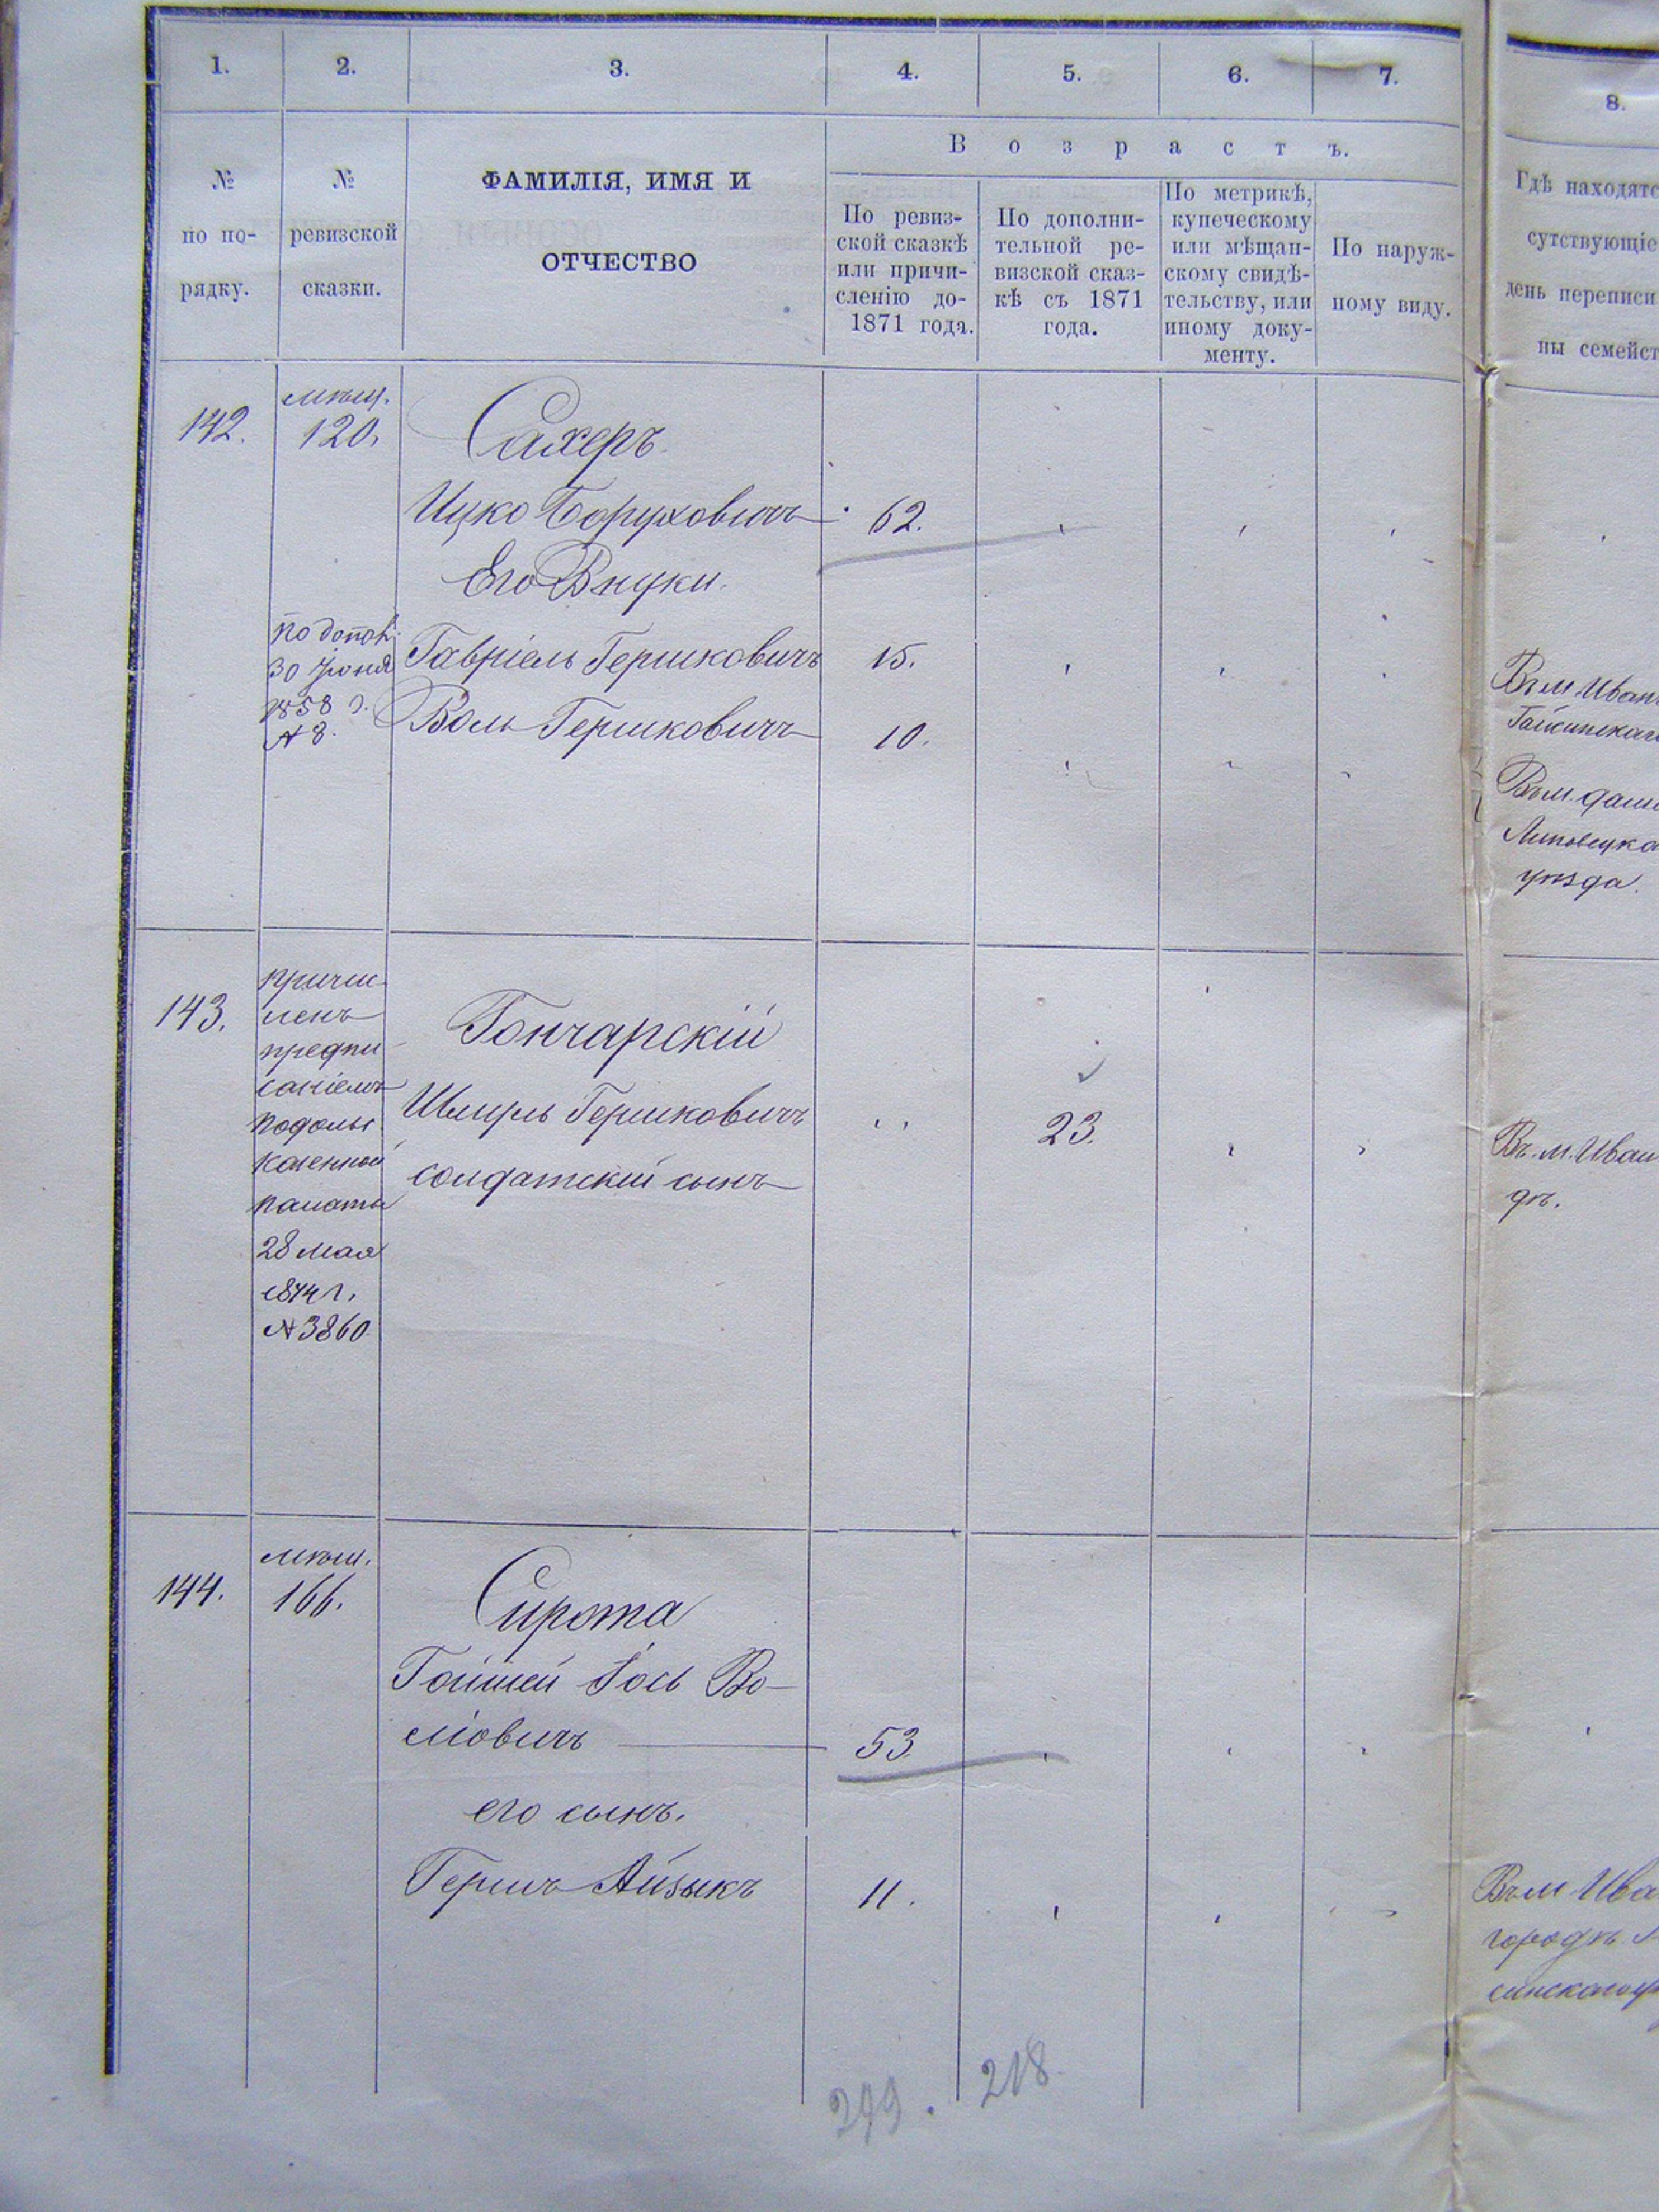 1. 2. 3. 4. 5. 6. 7.
8.
В о з р а с т ъ.
№
по по-
рядку.
№
ревизской
сказки.
ФАМИЛІЯ, ИМЯ И
ОТЧЕСТВО
По ревиз-
ской сказкѣ
или причи-
сленію до-
1871 года.
По дополни-
тельной ре-
визской сказ-
кѣ съ 1871
года.
По метрикѣ,
купеческому
или мѣщан-
скому свидѣ-
тельству, или
иному доку-
менту.
По наруж-
ному виду.
Гдѣ находятс
сутствующіе
день переписи
ны семейст
142.
мѣщ.
120.
Сахеръ
Ицко Боруховичъ 62.
Его Внуки.
По допол.
30 Іюня
1858 г.
№ 8.
Гавріель Гершковичъ 15.
Воль Гершковичъ 10.
Въ м. Иван
Гайсинскаго
Въ м. Даш
Липовецка
уѣзда.
143.
причи-
сленъ
предпи-
саніемъ
Подольс.
Казенной
палаты
28 Мая
1874 г.
№ 3860
Гончарскій
Шмуль Гершковичъ 23.
солдатскій сынъ
Въ м. Иван
дѣ.
144.
мѣщ.
166.
Сирота
Іось Во-
ліовичъ 53
его сынъ.
Гершъ Айзыкъ 11.
Въ м. Ива
городѣ
синскаго у
299. 218.